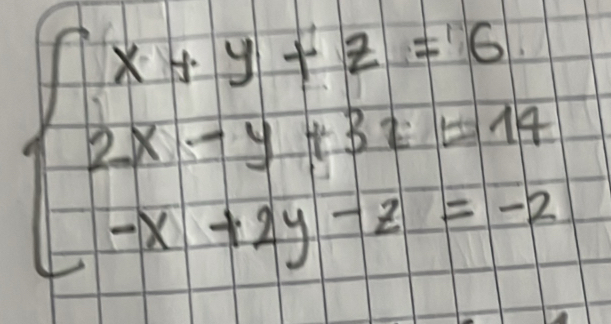 x + y + z = 6
2x - y + 3z = 14
-x + 2y - z = -2